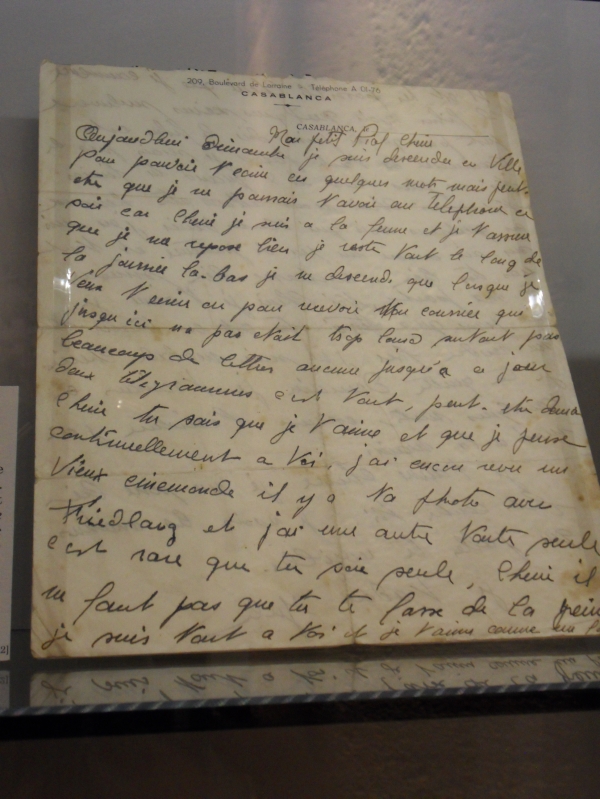 209, Boulevard de Lorraine - Téléphone A 01-76
CASABLANCA
CASABLANCA,
Mon petit Piaf Cherie
Aujourdhui Dimanche je suis descendu en Ville
pour pouvoir t'ecrire ces quelques mots mais peut-
etre que je ne pourrais t'avoir au telephone ce
soir car Cherie je suis a la ferme et je t'assure
que je me repose bien je reste tout le long de
la journée la-bas je ne descends que lorsque je
veux t'ecrire ou pour recevoir ton courrier qui
jusqu ici ne pas etait trop lourd surtout pas
beaucoup de lettres aucune jusqu'a ce jour
deux télégrammes c'est tout, peut-etre
Cherie tu sais que je t'aime et que je pense
continuellement a toi, j'ai encore revu un
vieux cinemonde il y a ta photo avec
Friedlang et j'ai une autre toute seule
c'est rare que tu sois seule, Cherie il
ne faut pas que tu te lasse de la
je suis tout a toi et je t'aime comme un